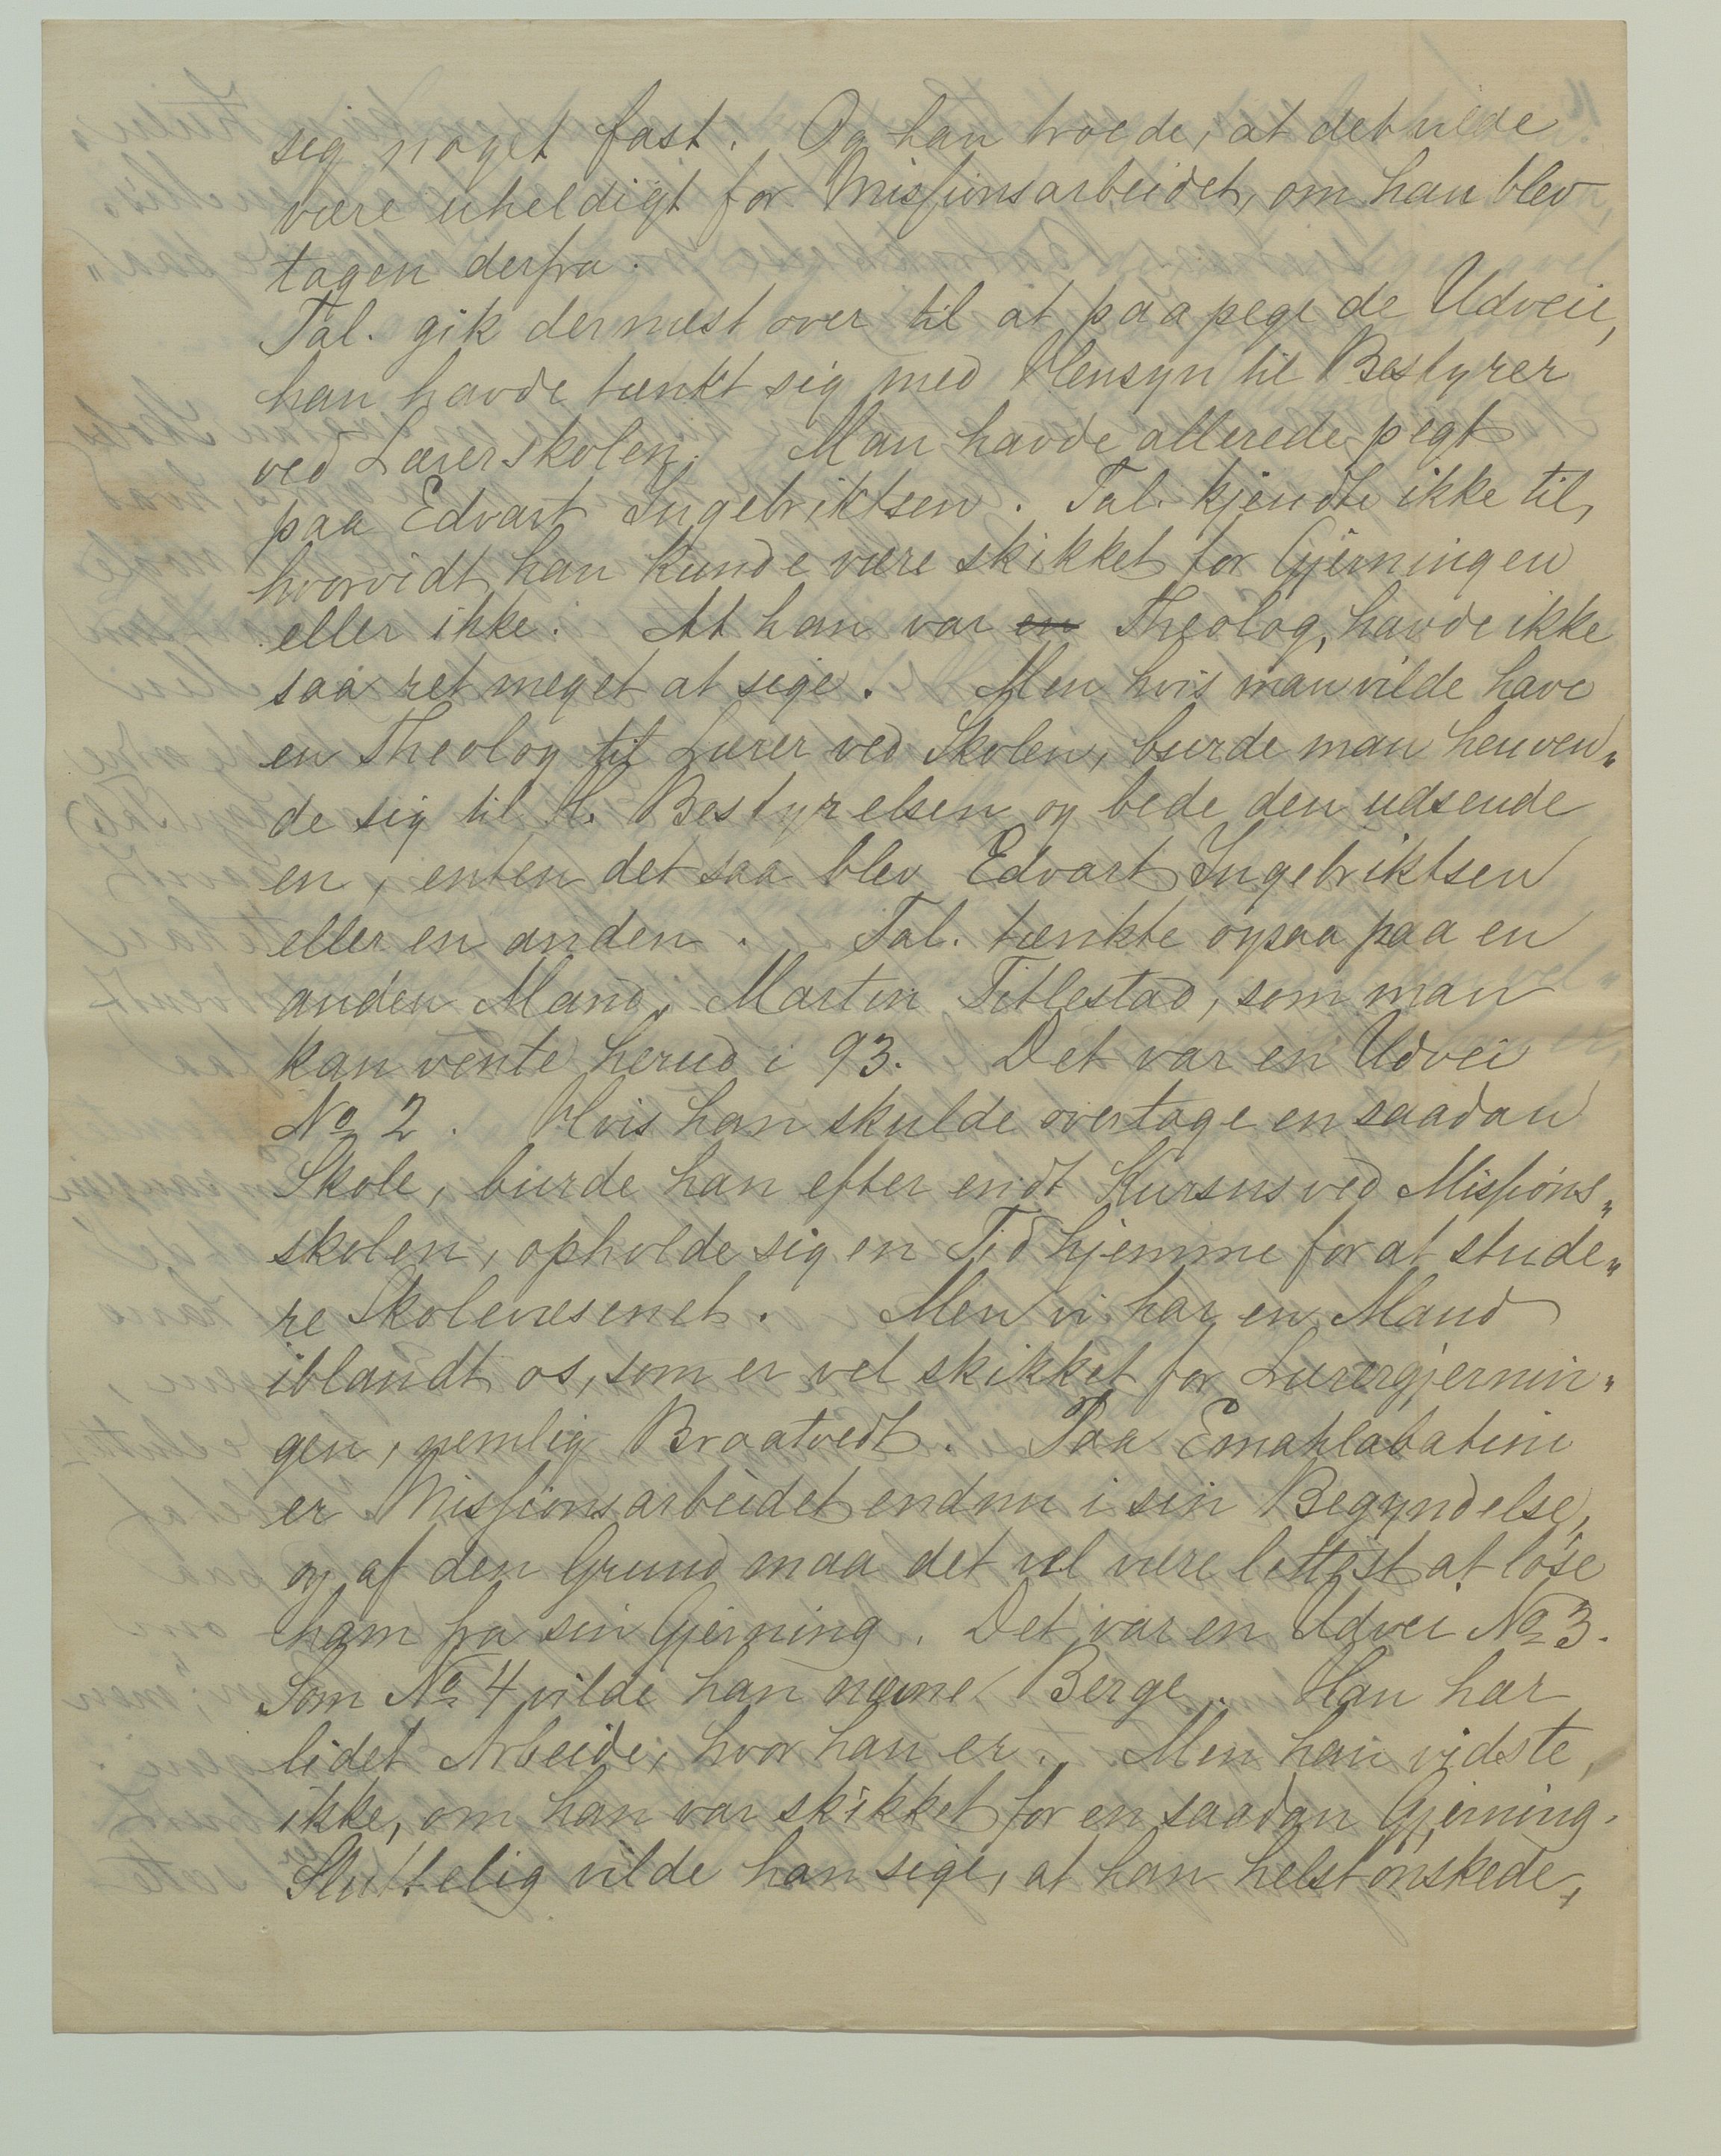 sig noget fast. Og han troede, at det vilde
være uheldigt for Missionsarbeidet, om han blev
tagen derfra.
Tal. gik dernæst over til at paapege de Udveie,
han havde tænkt sig med Hensyn til Bestyrer
ved Lærerskolen. Man havde allerede pegt
paa Edvart Ingebriktsen. Tal. kjendte ikke til,
hvorvidt han kunde være skikket for Gjerningen
eller ikke. At han var en Theolog, havde ikke
saa ret meget at sige. Men hvis man vilde have
en Theolog til Lærer ved Skolen, burde man henven„
de sig til H. Bestyrelsen og bede den udsende
en, enten det saa blev Edvart Ingebriktsen
eller en anden. Tal. tænkte ogsaa paa en
anden Mand, Martin Titlestad, som man
kan vente herud i 93. Det var en Udvei
No 2. Hvis han skulde overtage en saadan
Skole, burde han efter endt Kursus ved Missions„
skolen, opholde sig en Tid hjemme for at stude„
re Skolevæsenet. Men vi har en Mand
iblandt os, som er vel skikket for Lærergjernin„
gen, nemlig Braatvedt. Paa Emahlabatini
er Missionsarbeidet endnu i sin Begyndelse,
og af den Grund maa det vel være lettest at løse
ham fra sin Gjerning. Det var en Udvei No 3.
Som No 4 vilde han nævne Berge. Han har
lidet Arbeide, hvor han er. Men han vidste
ikke, om han var skikket for en saadan Gjerning.
Sluttelig vilde han sige, at han helst ønskede,